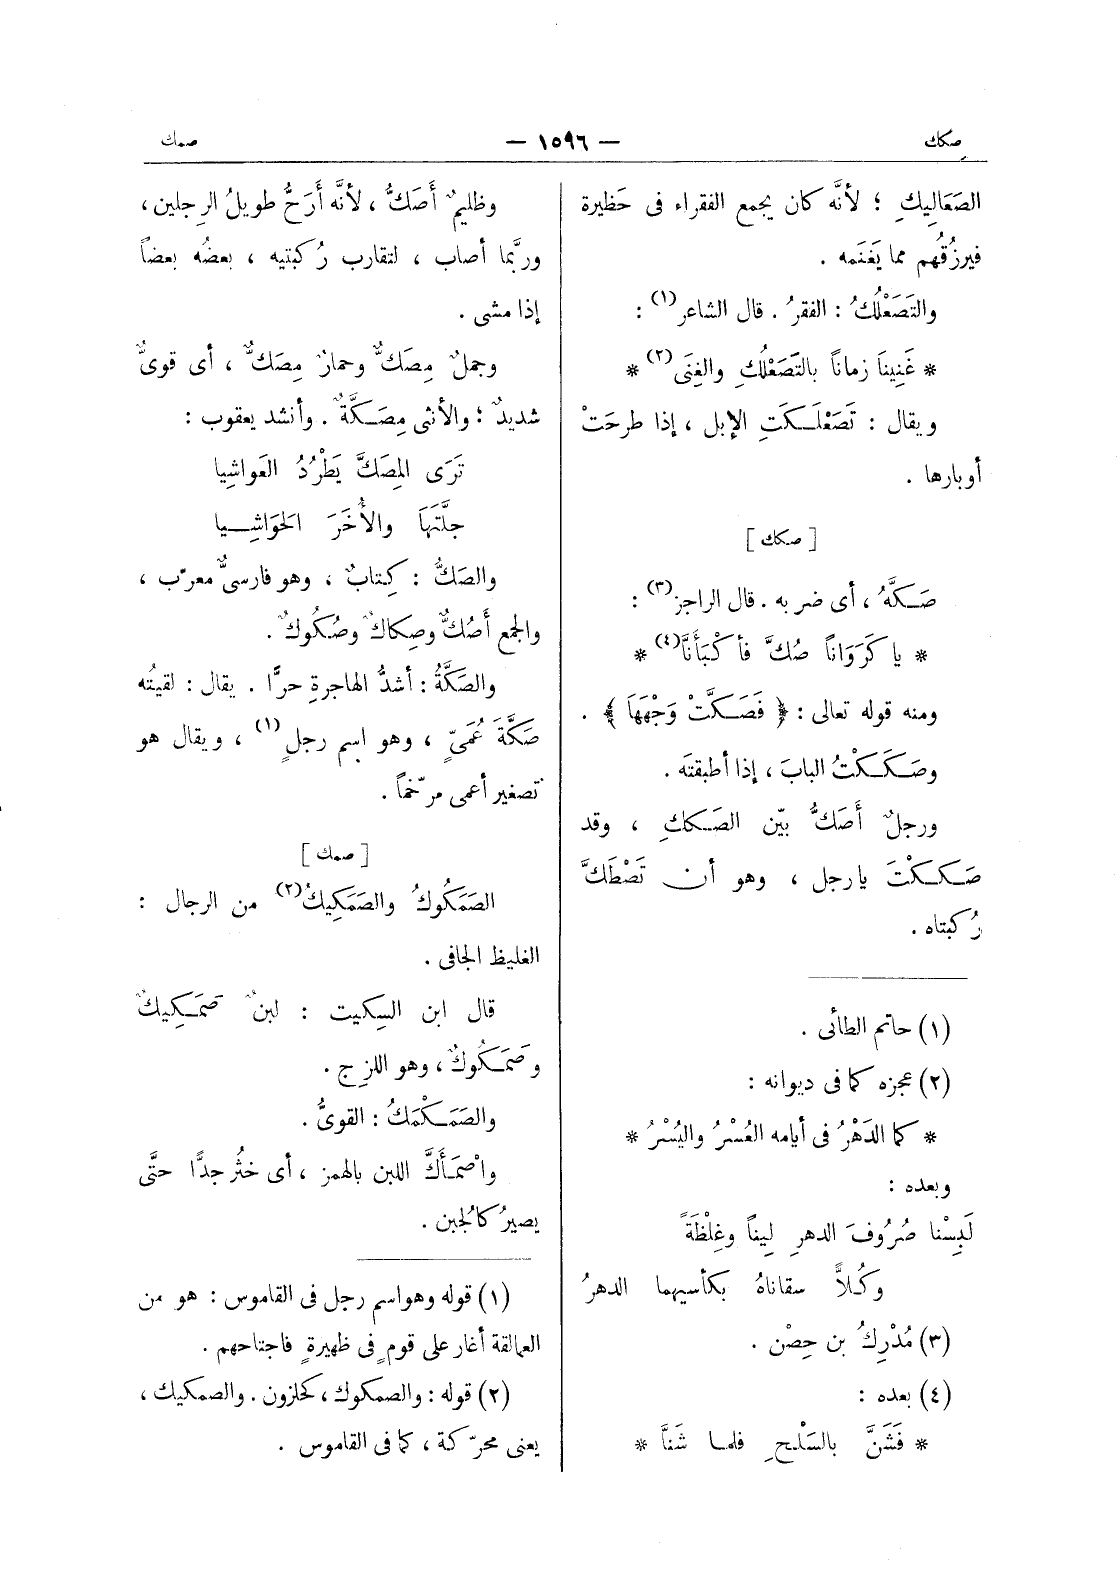 صكك
— ١٥٩٦ —
صمك
الصَعَالِيكِ ؛ لأنَّه كان يجمع الفقراء فى حَظيرة
فيرزُقُهم مما يَغنَمه .
والتَصَعْلُكُ : الفقرُ . قال الشاعر(١) :
* غَنِيناَ زماناً بالتَّصَعْلُكِ والغِنَى(٢) *
ويقال : تَصَعْلَكَتِ الإبل ، إذا طرحَتْ
أوبارها .
[ صكك ]
صَكَّهُ ، أى ضربه . قال الراجز(٣) :
* يا كَرَوَاناً صُكَّ فأكْبَأَنَّا(٤) *
ومنه قوله تعالى : ﴿ فَصَكَّتْ وَجْهَهَا ﴾ .
وصَكَكْتُ البابَ ، إذا أطبقتَه .
ورجلٌ أَصَكُّ بيّن الصَكَكِ ، وقد
صَكَكْتَ يارجل ، وهو أن تَصْطَكَّ
رُكبتاه .
(١) حاتم الطائى .
(٢) عجزه كما فى ديوانه :
* كما الدَهْرُ فى أيامه العُسْرُ واليُسْرُ *
وبعده :
لَبِسْنا صُرُوفَ الدهرِ لِيناً وغِلْظَةً
وكُلاًّ سقاناهُ بكأسيهما الدهرُ
(٣) مُدْرِكُ بن حِصْن .
(٤) بعده :
* فَشَنَّ بالسَلْحِ فلما شَنَّا *
وظليمٌ أَصَكُّ ، لأنَّه أَرَحُّ طويلُ الرِجلين ،
وربَّما أصاب ، لتقارب رُكبتيه ، بعضُه بعضاً
إذا مشى .
وجملٌ مِصَكٌّ وحمارٌ مِصَكٌّ ، أى قوىٌّ
شديدٌ ؛ والأنثى مِصَكَّةٌ . وأنشد يعقوب :
تَرَى المِصَكَّ يَطْرُدُ العَواشِيا
جلَّتَهَا والأُخَرَ الحَوَاشِيا
والصَكُّ : كِتابٌ ، وهو فارسىٌّ معرّب ،
والجمع أَصُكٌّ وصِكاكٌ وصُكُوكٌ .
والصَكَّةُ : أشدُّ الهاجرةِ حرًّا . يقال : لقيتُه
صَكَّةَ عُمَىٍّ ، وهو اسم رجلٍ(١) ، ويقال هو
تصغير أعمى مرّخماً .
[ صمك ]
الصَمَكُوكُ والصَمَكِيكُ(٢) من الرجال :
الغليظ الجافى .
قال ابن السِكيت : لبنٌ صَمَكِيكٌ
وصَمَكُوكٌ ، وهو اللزِج .
والصَمَكْمَكُ : القوىُّ .
واصْمَأَكَّ اللبن بالهمز ، أى خثُر جدًّا حتَّى
يصيرُ كالجُبن .
(١) قوله وهو اسم رجل فى القاموس : هو من
العمالقة أغار على قومٍ فى ظهيرةٍ فاجتاحهم .
(٢) قوله : والصمكوك ، كحلزون . والصمكيك ،
يعنى محرّكة ، كما فى القاموس .